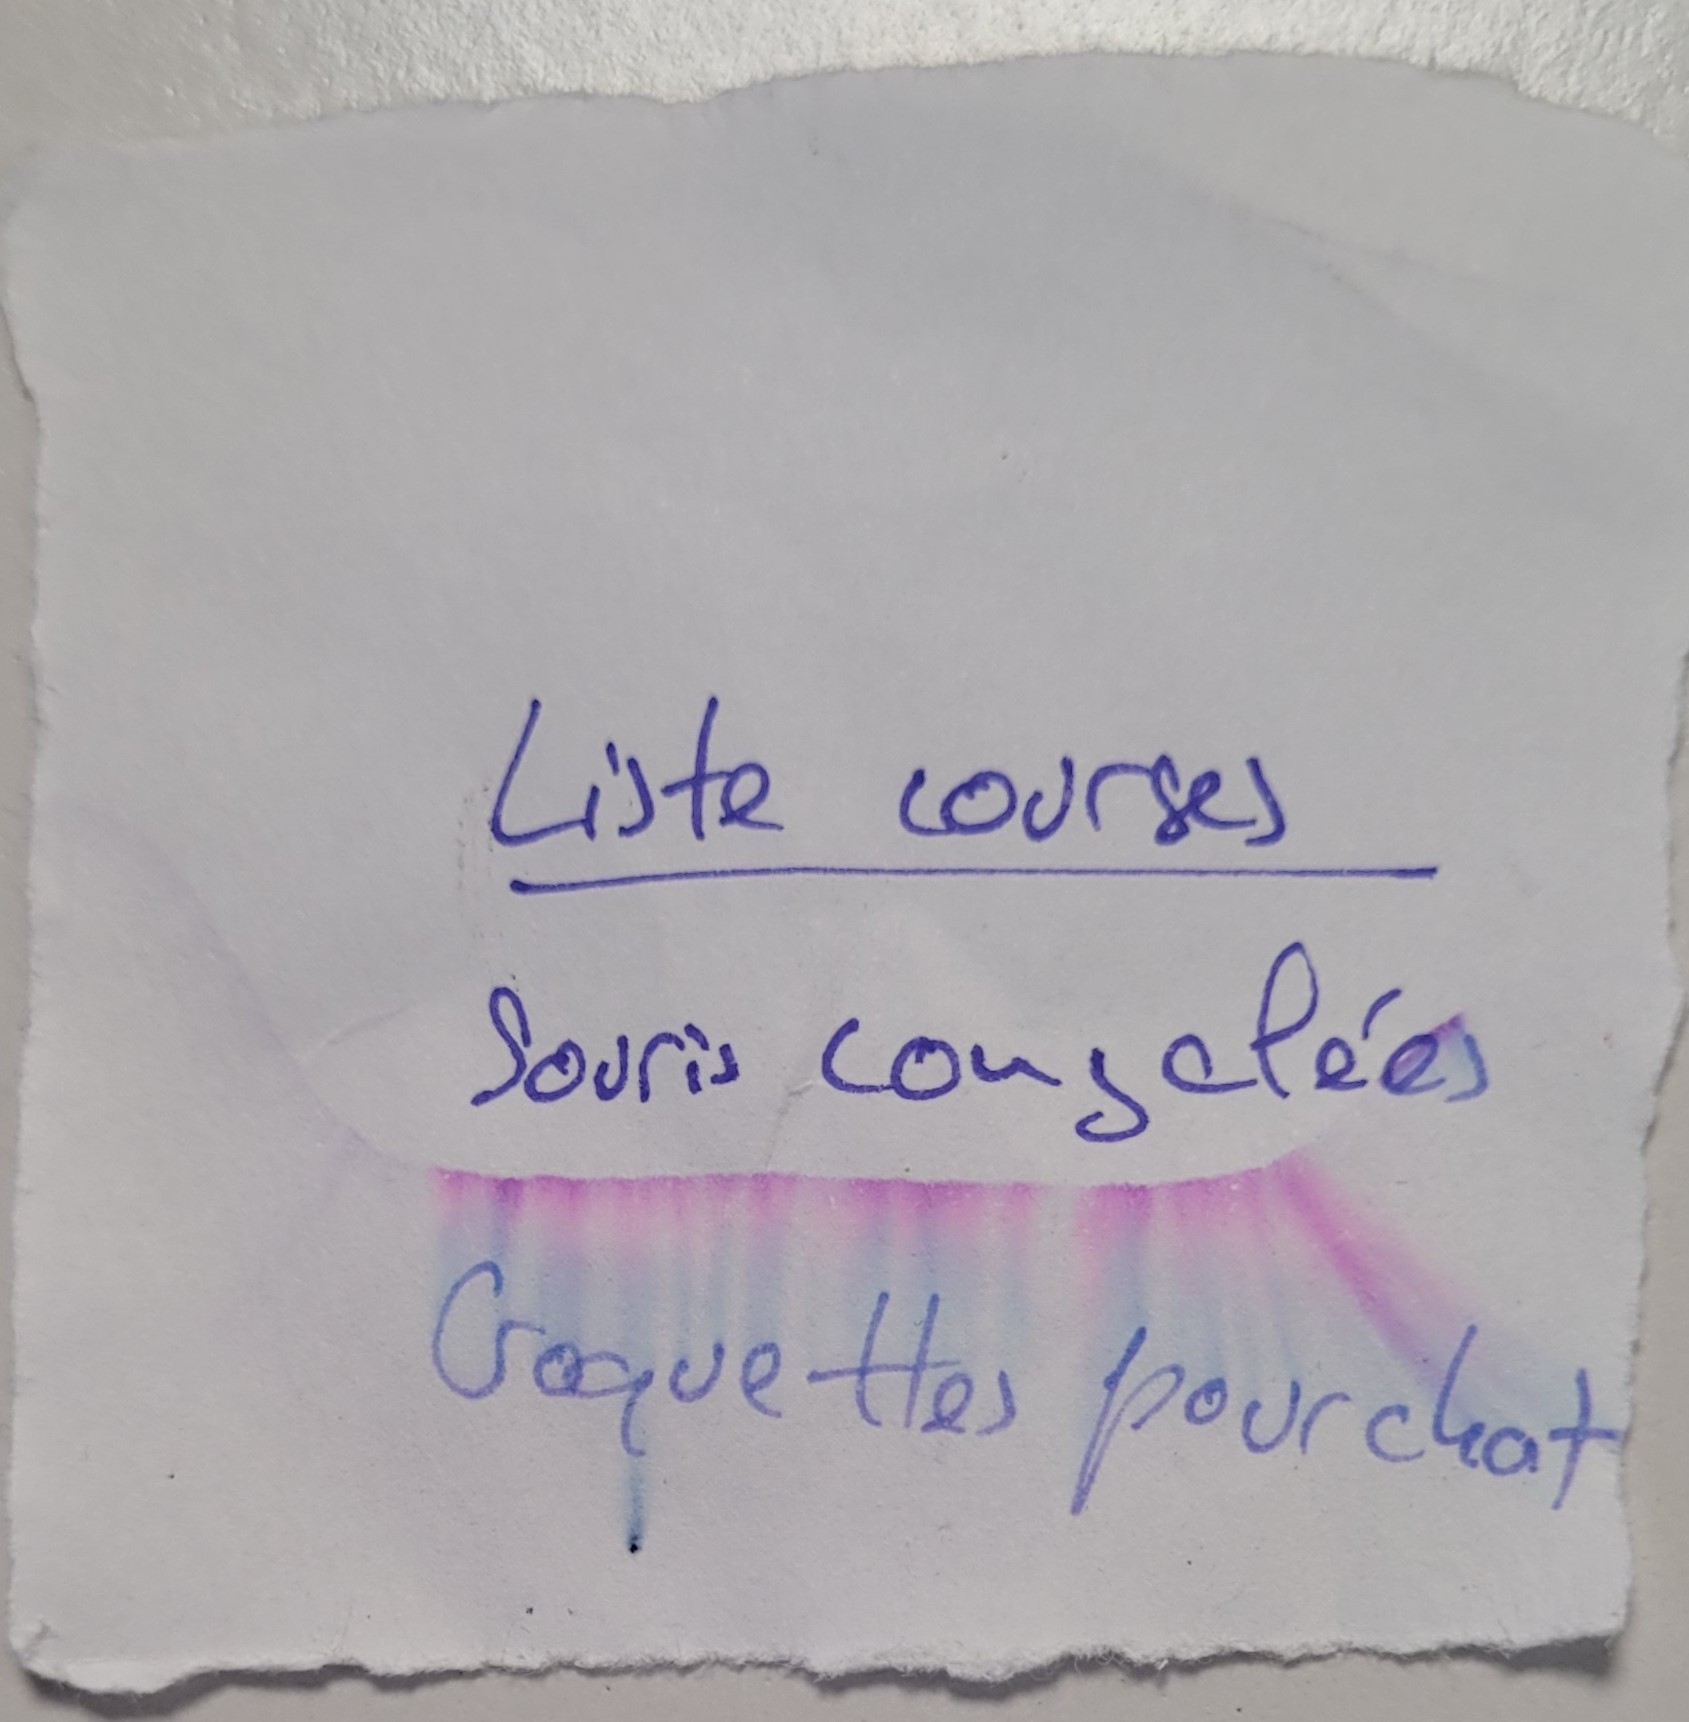 Liste courses
Souris congelées
Croquettes pour chat